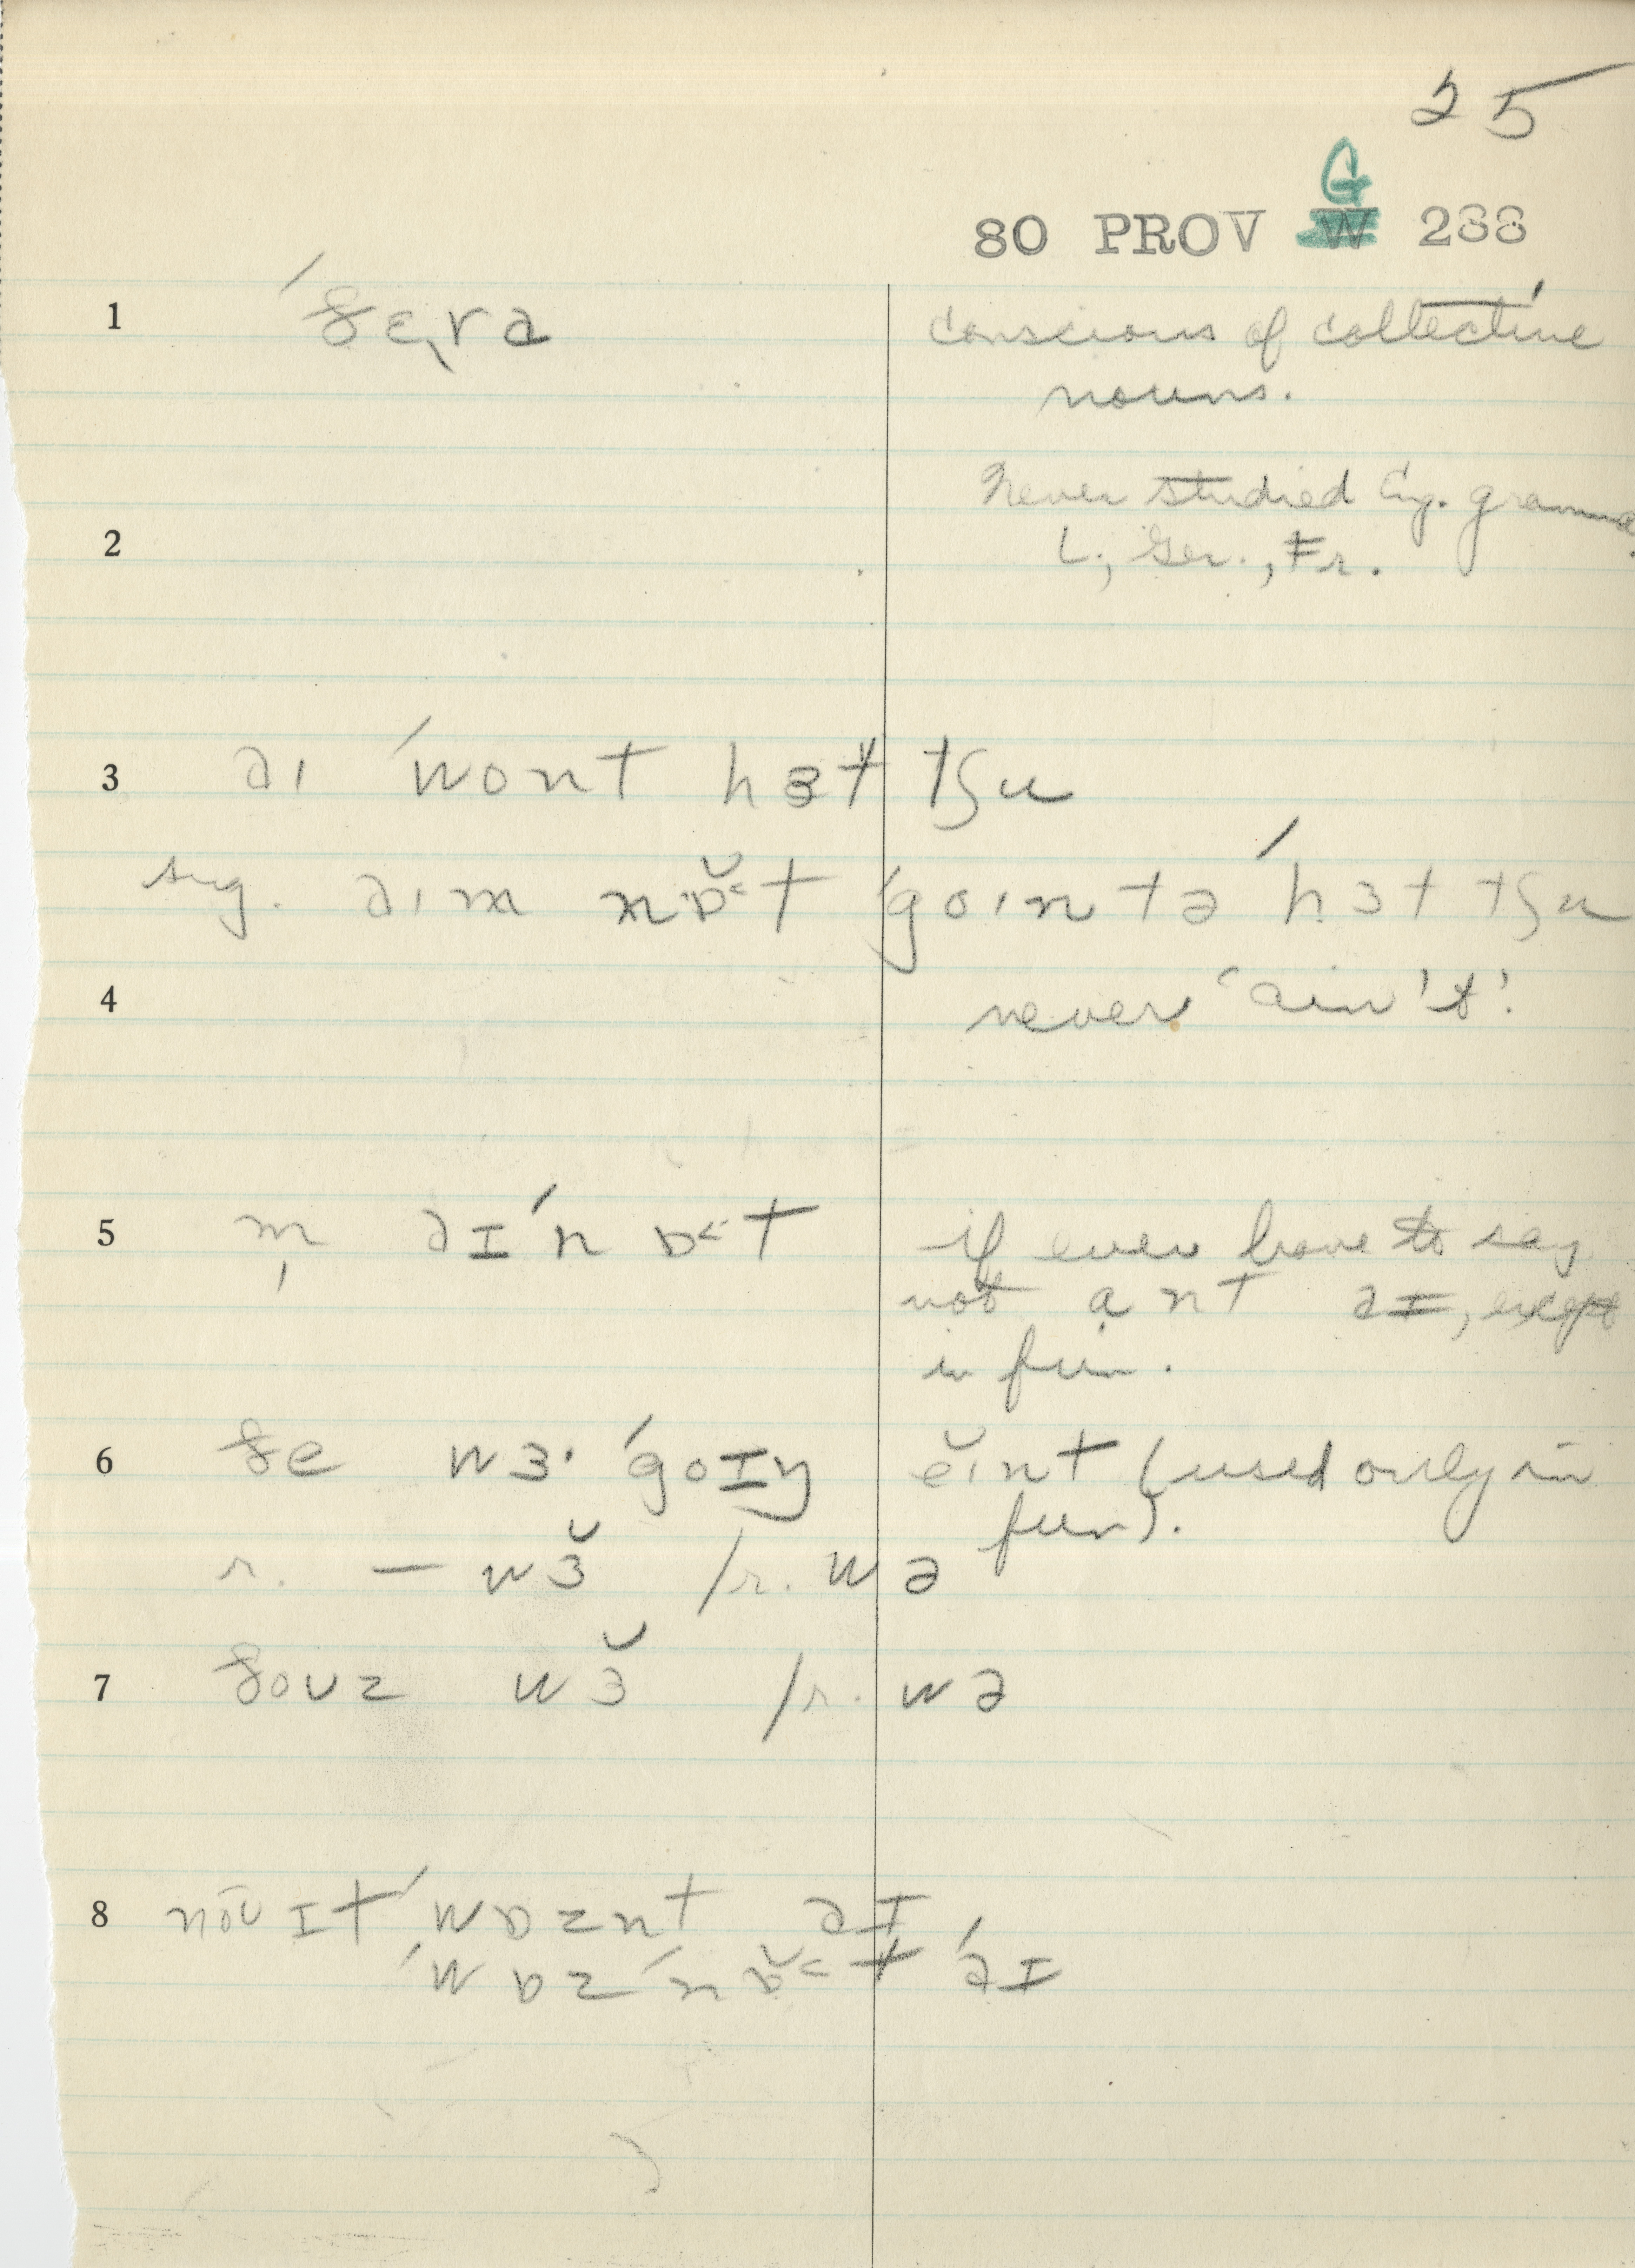 25
G
80 PROV W 288
1 ˈðɛ̨rə conscious of collective
nouns.
Never studied Eng. gramma
2 L., Ger., Fr.
3 aɪ ˈwont hɜt tʃu
sug. aɪm nɒ̆˂t ˈgoɪn tə ˈhɜt tʃu
4 never 'ain't'.
5 m̩ aɪˈnɒ˂t if ever have to say
not ant aɪ, except
in fun.
6 ðe wɜ· ˈgoɪŋ ĕɪnt (used only in
fun).
r. — wɜ̆ /r. wə
7 ðouz wɜ̆ /r. wə
8 nōu ɪt ˈwɒznt aɪ
ˈwɒz ˈnɒ̆˂t ˈaɪ